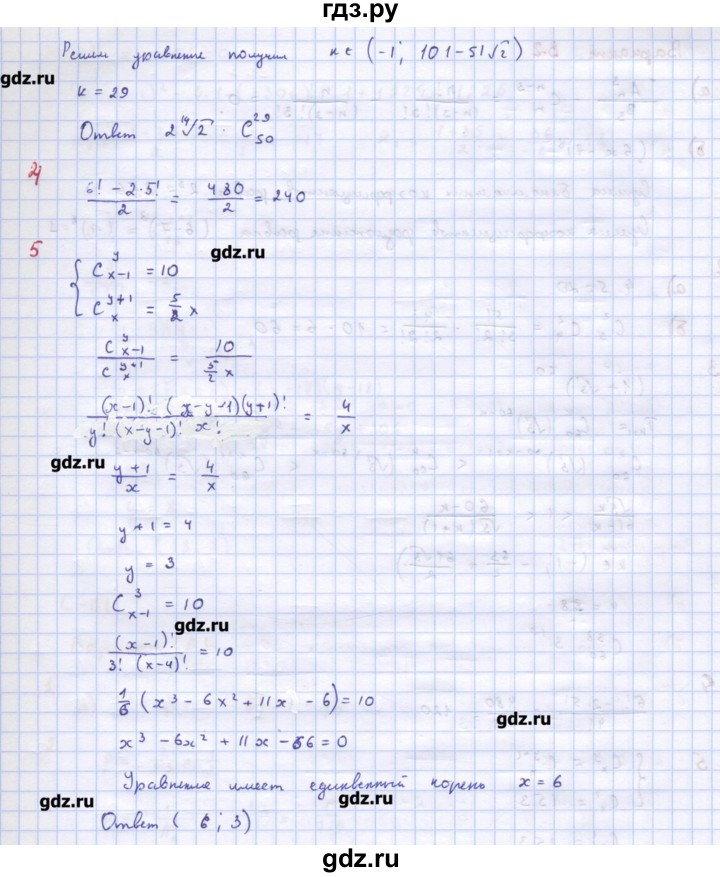 гдз.ру
Решим уравнение получим k ∈ (-1; 101-51√2)
gdz.ru
k = 29
Ответ 2¹⁴√2 · C₅₀²⁹
4
(6! - 2·5!)/2 = 480/2 = 240
5
gdz.ru
{ Cₓ₋₁ʸ = 10
Cₓʸ⁺¹ = 5/2 x
Cₓ₋₁ʸ / Cₓʸ⁺¹ = 10 / (5/2 x)
(x-1)! (x-y-1)! (y+1)! / y! (x-y-1)! x! = 4/x
gdz.ru
(y+1)/x = 4/x
y+1 = 4
y = 3
Cₓ₋₁³ = 10
gdz.ru
(x-1)! / 3! (x-4)! = 10
1/6 (x³ - 6x² + 11x - 6) = 10
gdz.ru
x³ - 6x² + 11x - 66 = 0
Уравнение имеет единвенный корень x = 6
gdz.ru gdz.ru
Ответ (6; 3)
gdz.ru